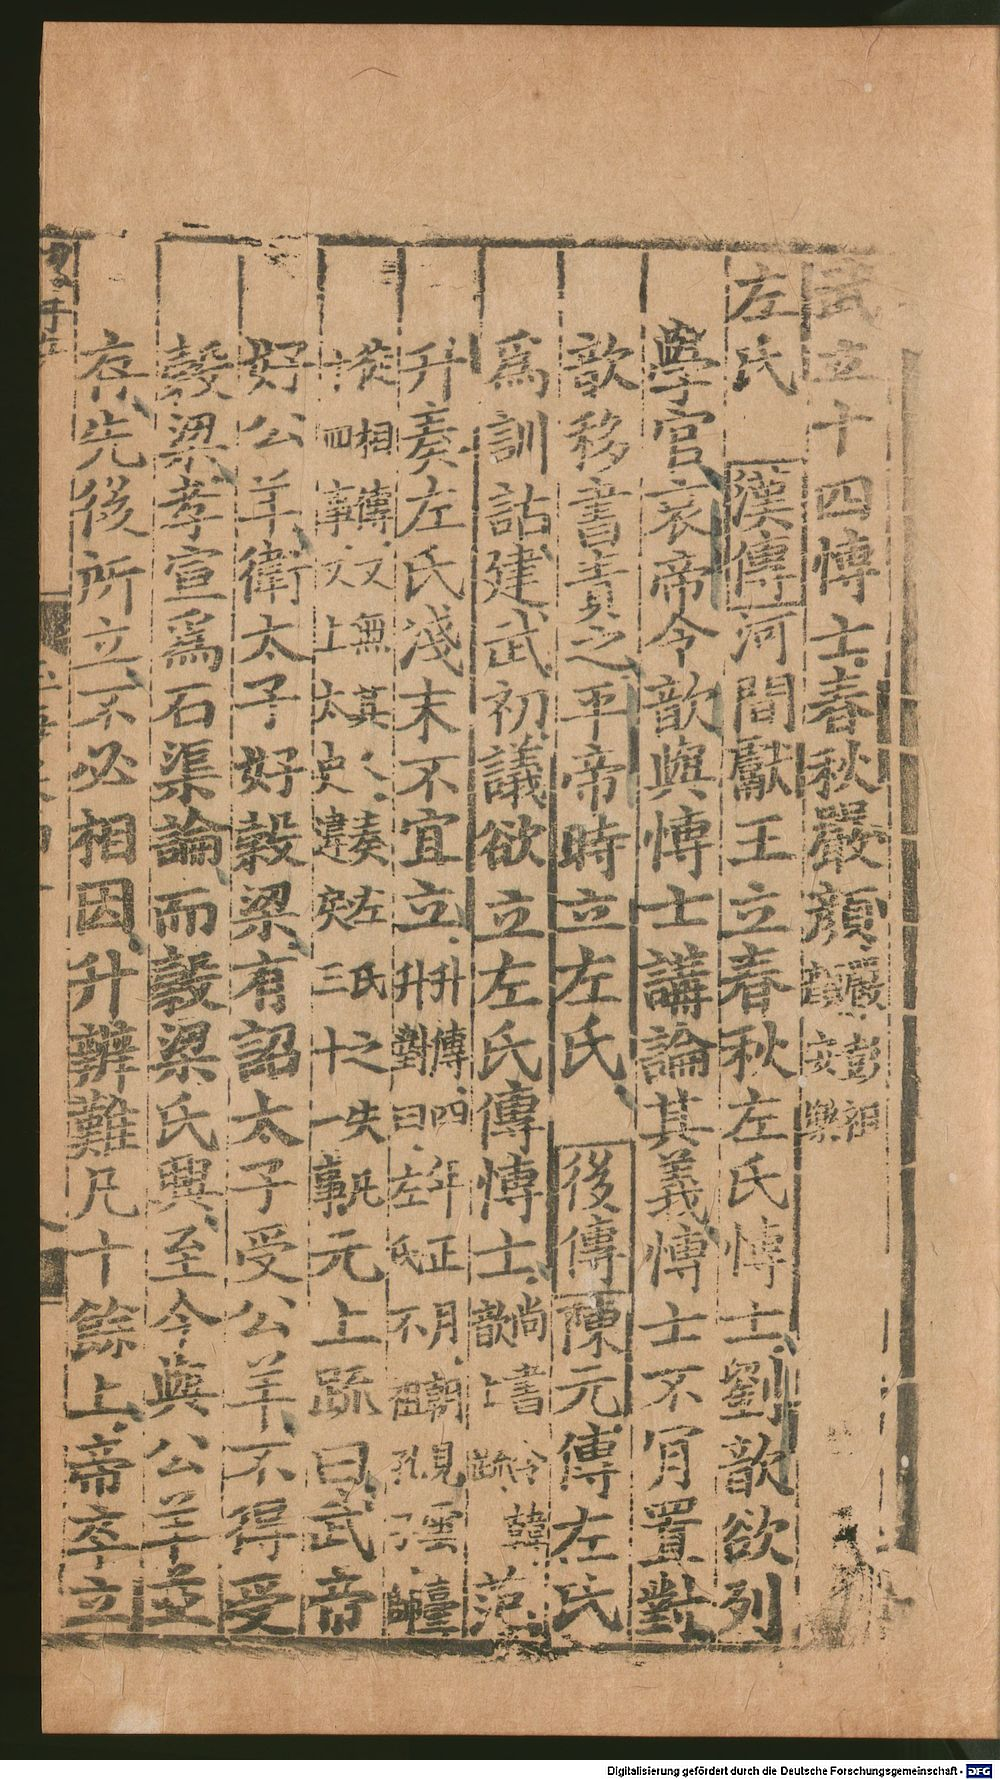 武立十四博士春秋嚴顔嚴彭祖顔安樂
左氏 漢傳河間獻王立春秋左氏博士劉歆欲列
學官哀帝令歆與博士講論其義博士不肎置對
歆移書責之平帝時立左氏 後傳陳元傳左氏
爲訓詁建武初議欲立左氏傳博士尚書令韓歆上疏范
升奏左氏淺末不宜立升傳四年正月朝見雲臺升對曰左氏不祖孔子師
徒相傳又無其人奏左氏之失凡十四事又上太史違戾三十一事元上疏曰武帝
好公羊衛太子好穀梁有詔太子受公羊不得受
穀梁孝宣爲石渠論而穀梁氏興至今與公羊並
存先後所立不必相因升辨難凡十餘上帝卒立
Digitalisierung gefördert durch die Deutsche Forschungsgemeinschaft - DFG